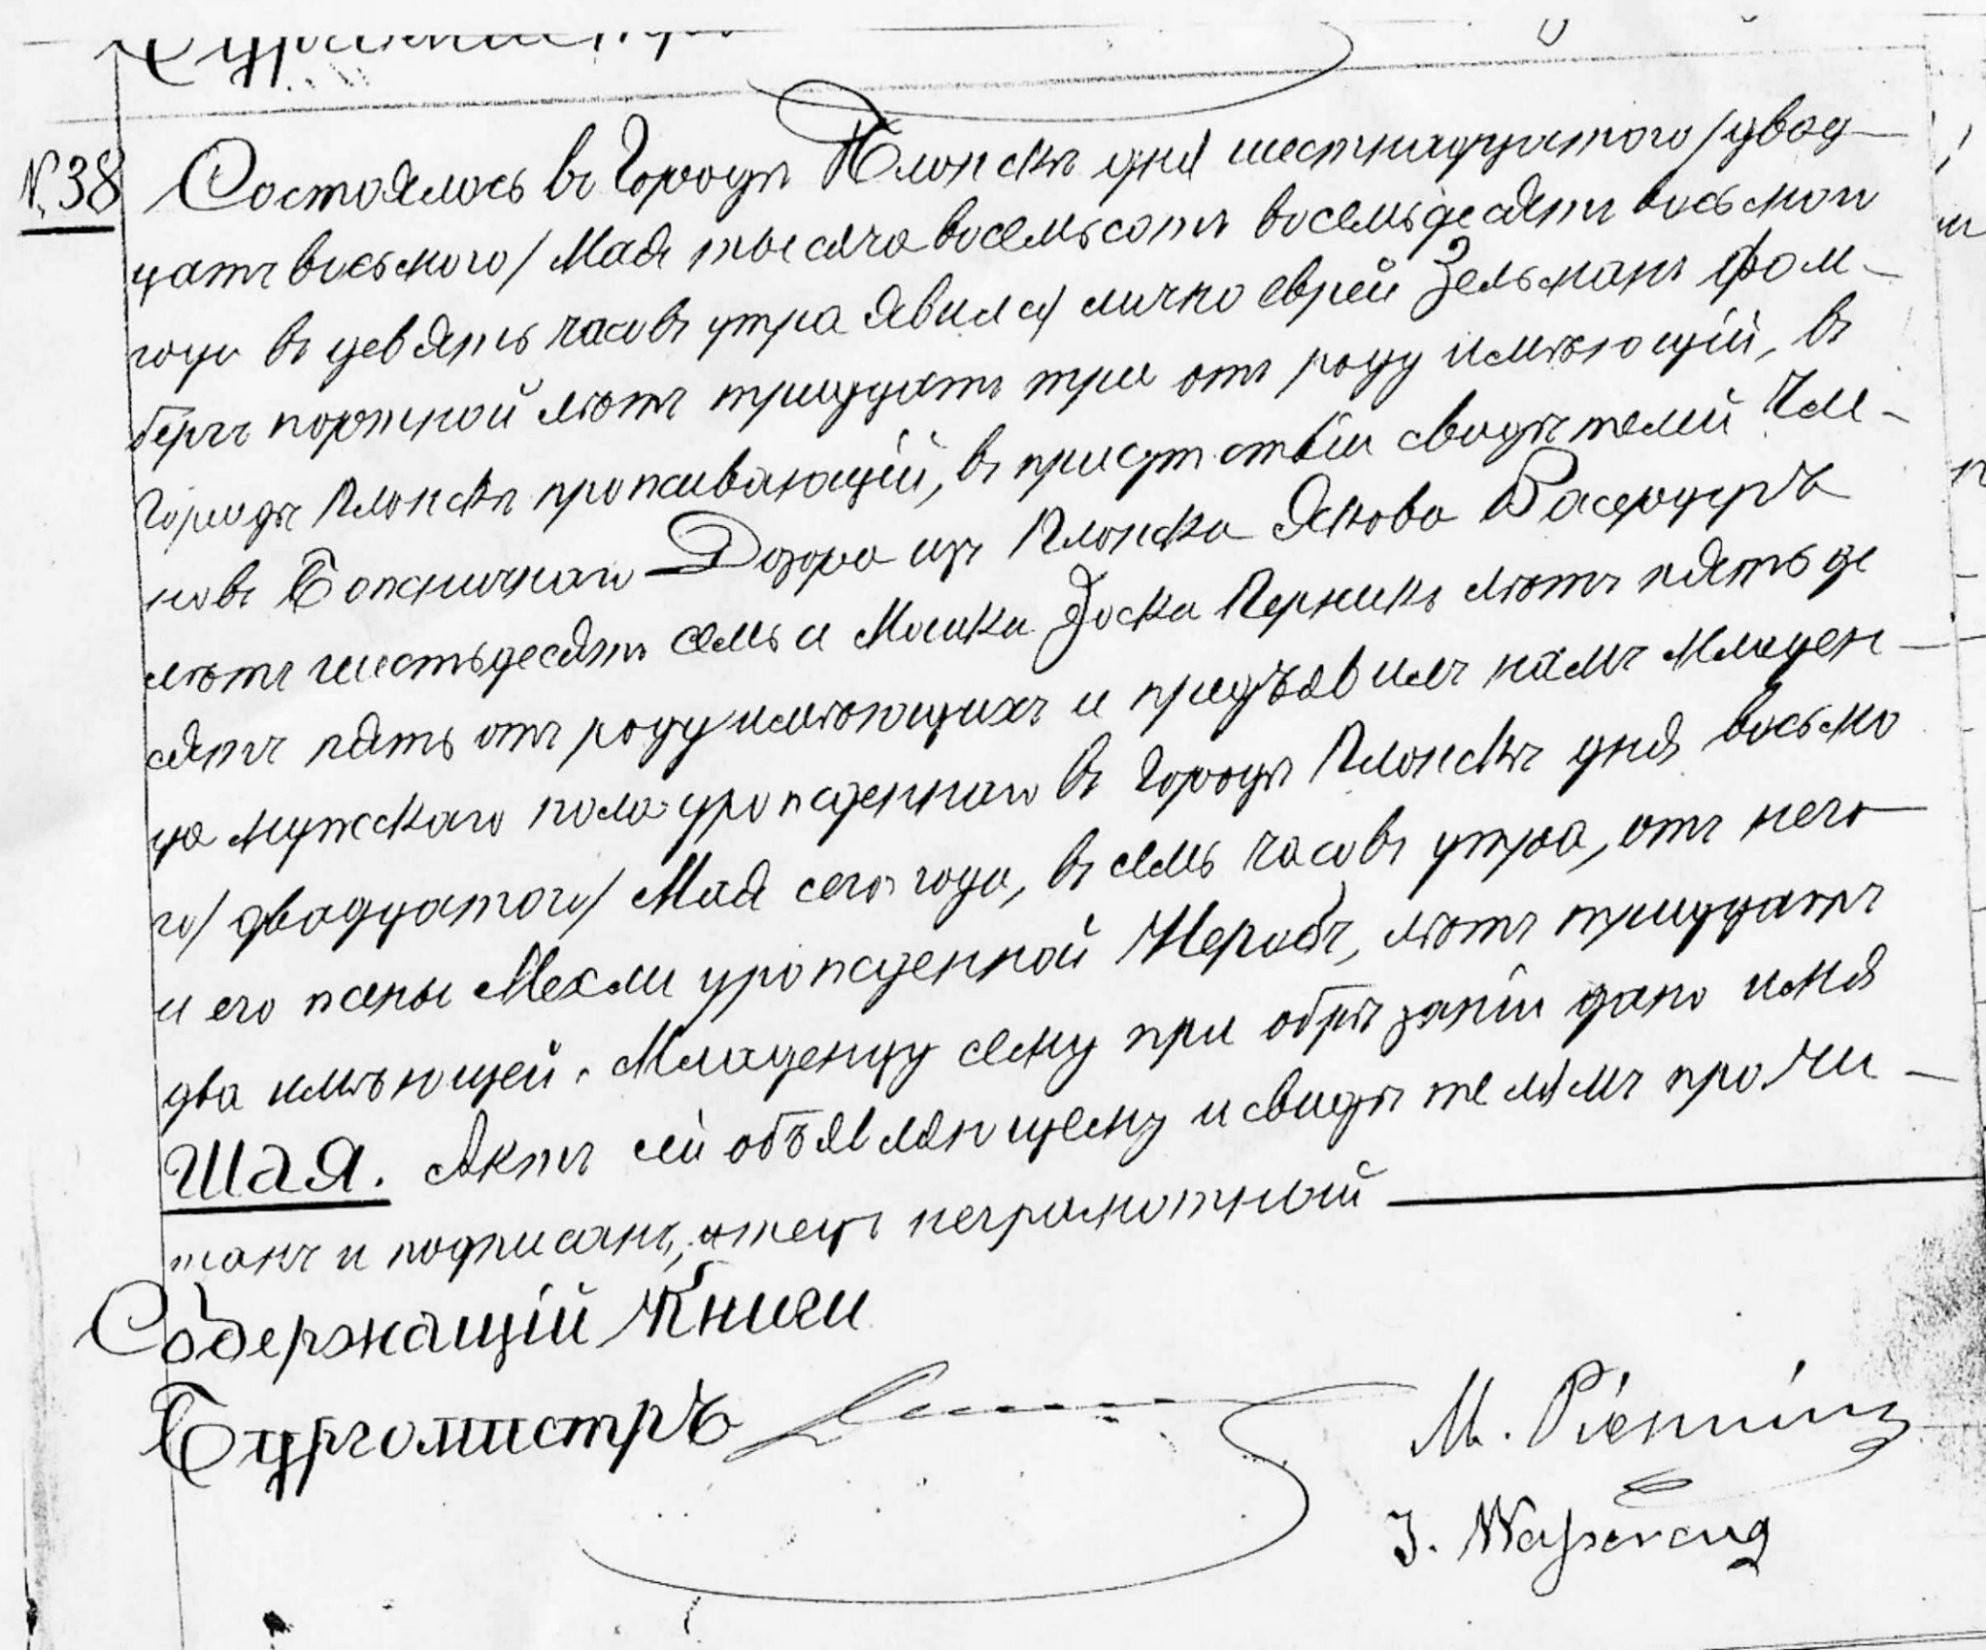 № 38
Состоялось въ Городѣ Плонскѣ дня шестнадцатаго /двад-
цать восьмого/ Мая тысяча восемьсотъ восемьдесятъ восьмого
года въ девять часовъ утра явился лично еврей Зельманъ Фом-
бергъ портной лѣтъ тридцать три отъ роду имѣющій, въ
Городѣ Плонскѣ проживающій, въ присутствіи свидѣтелей Чле-
новъ Божничнаго Дозора изъ Плонска Якова Васерцугъ
лѣтъ шестьдесятъ семь и Мошки Іоска Перникъ лѣтъ пятьде
сятъ пять отъ роду имѣющихъ и предъявилъ намъ младен-
ца мужскаго пола урожденнаго въ Городѣ Плонскѣ дня восьмо
го/ двадцатого/ Мая сего года, въ семь часовъ утра, отъ него
и его жены Мехли урожденной Жеробъ, лѣтъ тридцать
два имѣющей. Младенцу сему при обрѣзаніи дано имя
Шая. Актъ сей объявляющему и свидѣтелямъ прочи-
танъ и подписанъ, отецъ неграмотный
Содержащій Книги
Бургомистръ
M. Piernik
J. Wasercug